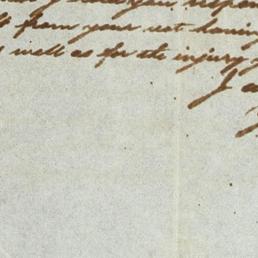 you
from your not having
well as for the injury
I a